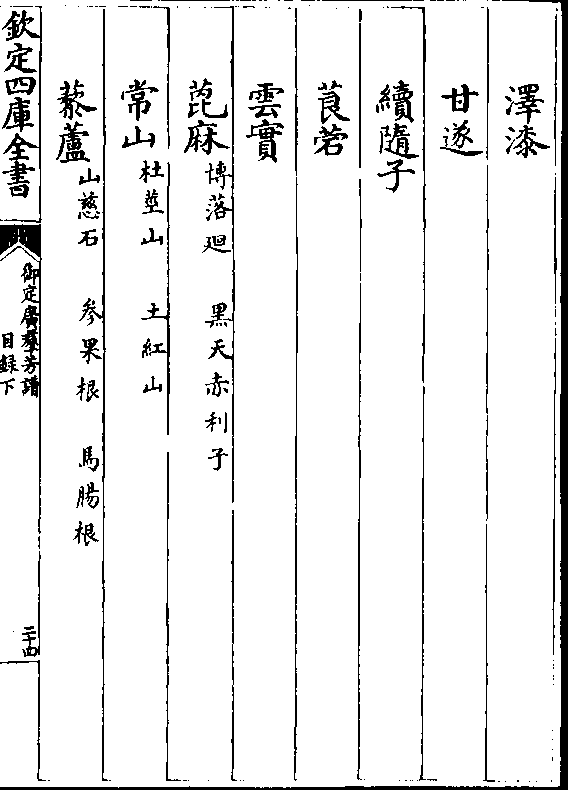 澤漆
甘遂
續隨子
莨菪
雲實
萞麻 博落廻 黒天赤利子
常山 杜莖山 土紅山
藜蘆 山慈石 參果根 馬腸根
欽定四庫全書
御定廣羣芳譜
目録下
二十四